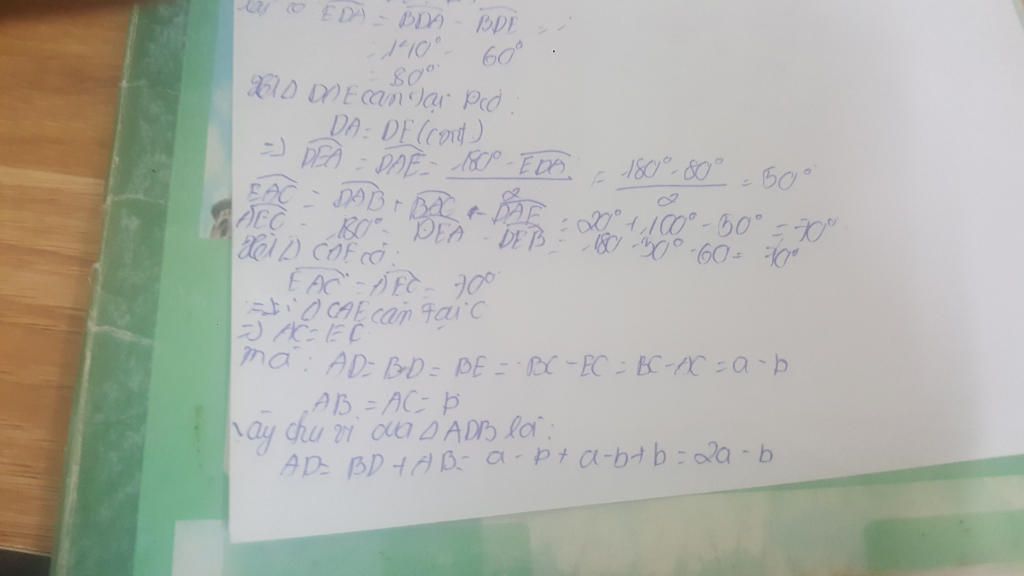 lại có EDA = BDA - BDE
= 140° - 60°
= 80°
Xét Δ DAE cân tại D có:
DA = DE (cmt)
=> DEA = DAE = 180° - EDA / 2 = 180° - 80° / 2 = 50°
EAC = DAB + BAC - DAE = 20° + 100° - 50° = 70°
AEC = 180° - DEA - DEB = 180 - 50° - 60 = 70°
Xét Δ CAE có:
EAC = AEC = 70°
=> Δ CAE cân tại C
=> AC = EC
mà: AD = BD = BE = BC - EC = BC - AC = a - b
AB = AC = b
ậy chu vi của Δ ADB là:
AD = BD + AB = a - b + a - b + b = 2a - b